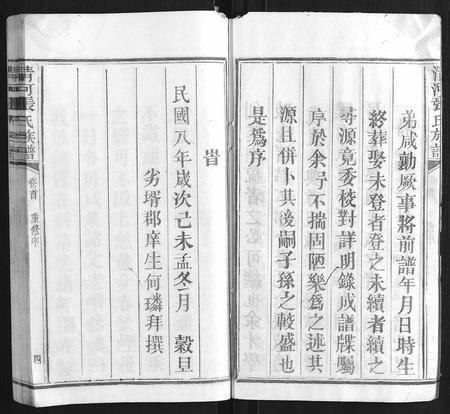 清河張氏族譜
弟咸勷厥事將前譜年月日時生
終葬娶未登者登之未續者續之
尋源竟委校對詳明錄成譜牒囑
序於余予不揣固陋樂為之述其
源且併卜其後嗣子孫之較盛也
是為序
旹
民國八年歲次己未孟冬月 榖旦
劣壻郡庠生何璘拜撰
清河張氏族譜
卷首
重修序
四